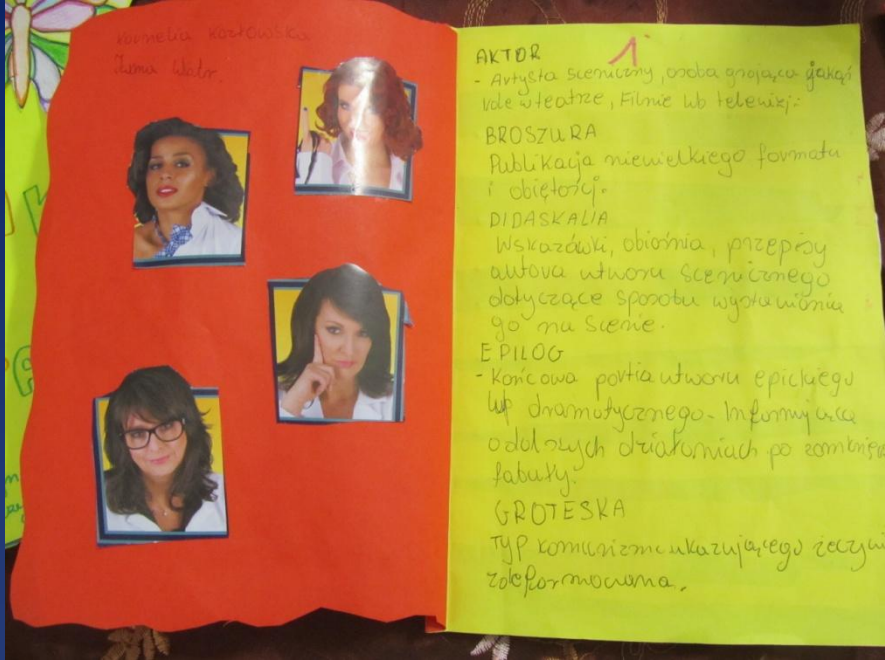 Kornelia Kozłowska
1
AKTOR
- Artysta sceniczny, osoba grająca jakąś
role w teatrze, Filmie lub telewizji.
BROSZURA
Publikacja niewielkiego formatu
i objętości.
DIDASKALIA
Wskazówki, objaśnia, przepisy
autora utworu scenicznego
dotyczące sposobu wystawiania
go na scenie.
EPILOG
- Końcowa partia utworu epickiego
lub dramatycznego. Informująca
o dalszych działaniach po zamknięc
fabuły.
GROTESKA
Typ komunizmu ukazującego
zdeformowana.